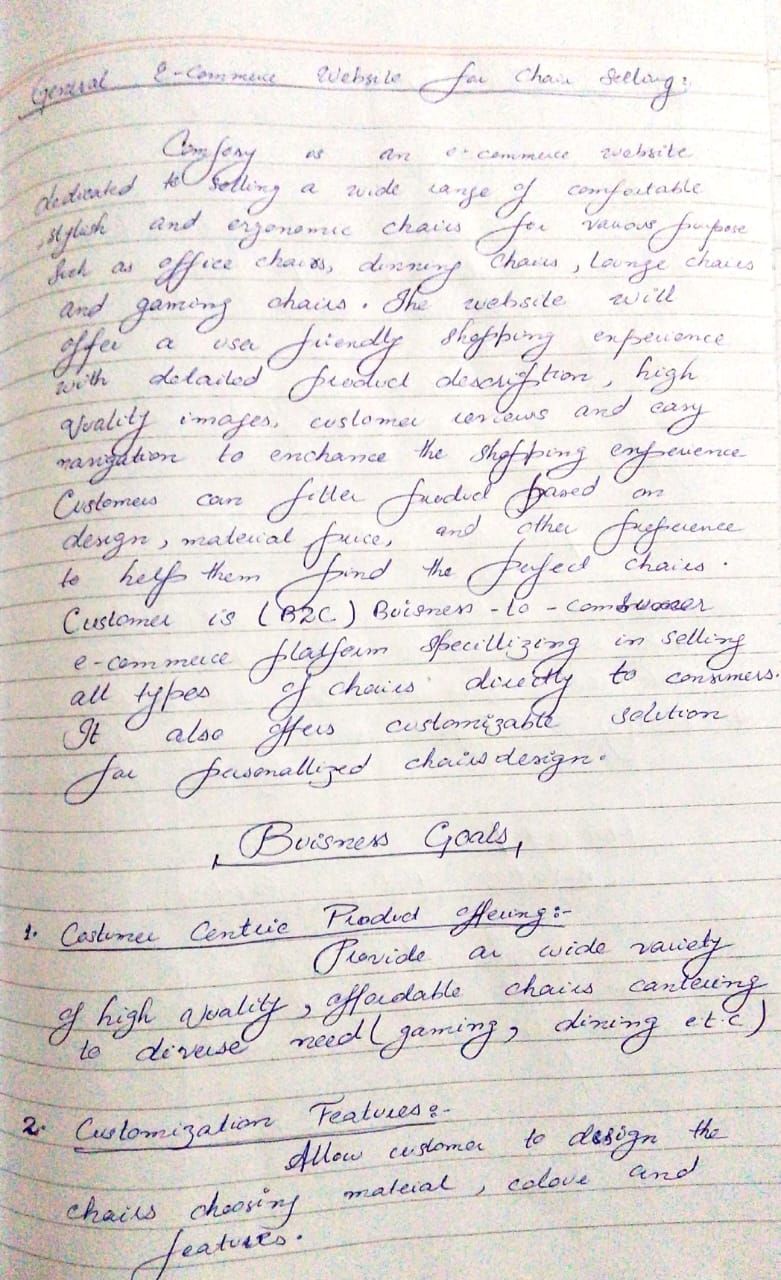 General E-Commerce Website for Chair Selling:
Comfony is an e-commerce website
dedicated to selling a wide range of comfortable
, stylish and ergonomic chairs for various purpose
Such as office chairs, dinning chairs, lounge chairs
and gaming chairs. The website will
offer a user friendly shopping experience
with detailed product description, high
quality images, customer reviews and easy
navigation to enchance the shopping experience
Customers can filter product based on
design, material price, and other preference
to help them find the perfect chairs.
Customer is (B2C) Buisness-to-consumer
e-commerce platform specillizing in selling
all types of chairs directly to consumers.
It also offers customizable solution
for personallized chairs design.
Buisness Goals
1. Costumer Centric Product offering:-
Provide a wide variety
of high quality, affordable chairs cantering
to diverse need (gaming, dining e.t.c)
2. Customization Features:-
Allow customer to design the
chairs choosing material, colour and
features.